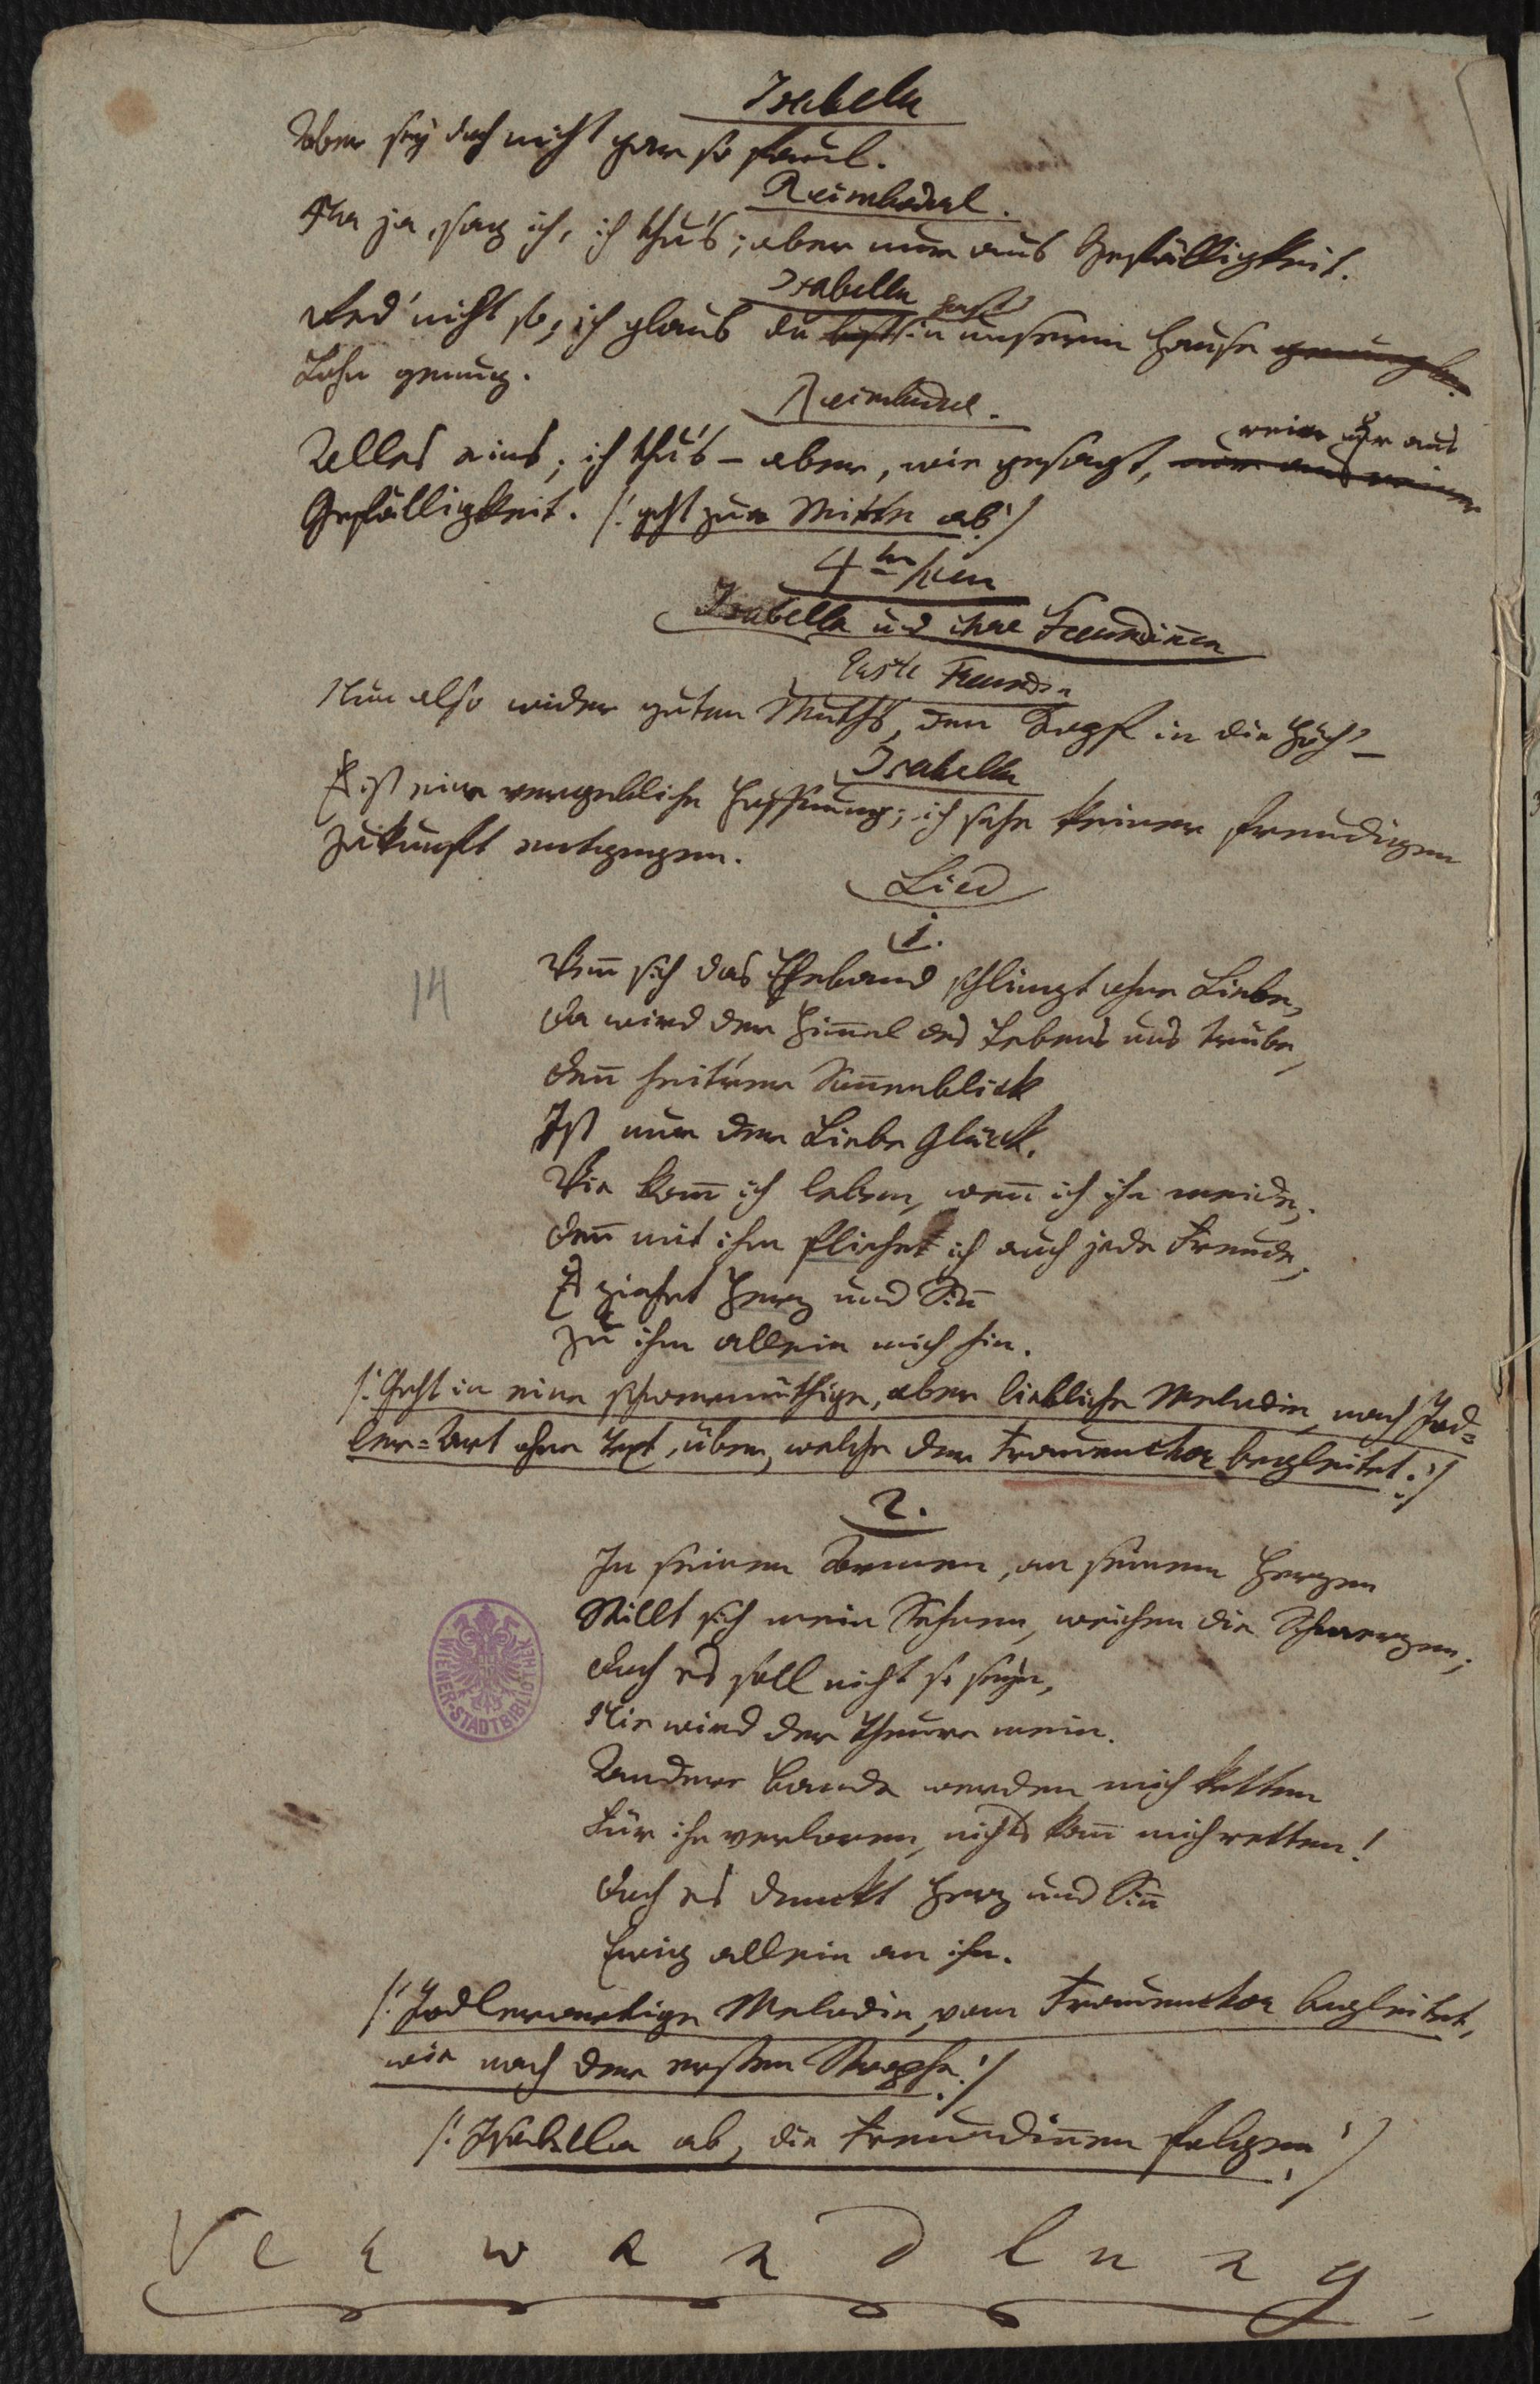 Isabella
Aber sey doch nicht gar so faul.
Reimbodal.
Na ja, sag ich, ich thu's; aber nur aus Gefälligkeit.
Isabella
Red' nicht so, ich glaub du hast in unserm Hause
Lohn genung.
Reimbodal.
Alles eins; ich thu's – aber, wie gesagt, rein nur aus
Gefälligkeit. /: geht zur Mitte ab :/
4te Scen
Isabella und ihre Freundiñen
Erste Freundin
Nun also wider guten Muths, den Kopf in die Höh' –
Isabella
Es ist eine vergebliche Hoffnung; ich sehe keiner freudigen
Zukunft entgegen.
Lied
1.
Weñ sich das Eheband schlingt ohne Liebe,
Da wird der Him̄el des Lebens uns trübe,
Deñ heit'rer Soñenblick
Ist nur der Liebe Glück.
Wie kañ ich leben, weñ ich ihn meide,
Deñ mit ihm fliehet ich auch jede Freude;
Es ziehet Herz und Siñ
Zu ihm allein mich hin.
/: Geht in eine schwermüthige, aber liebliche Melodie, nach Jod=
ler=Art ohne Text, über, welche der Frauenchor begleitet :/
14
2.
In seinen Armen, an seinem Herzen
Stillt sich mein Sehnen, weichen die Schmerzen;
Doch es soll nicht so seyn,
Nie wird der Theure mein.
Andere Bande werden mich ketten
Für ihn verloren, nichts kañ mich retten!
Doch es denckt Herz und Siñ
Ewig allein an ihn.
/: Jodlerartige Melodie, vom Frauenchor begleitet,
wie nach der ersten Strophe. :/
/: Isabella ab, die Freundiñen folgen :/
Verwandlung
WIENER-STADTBIBLIOTHEK